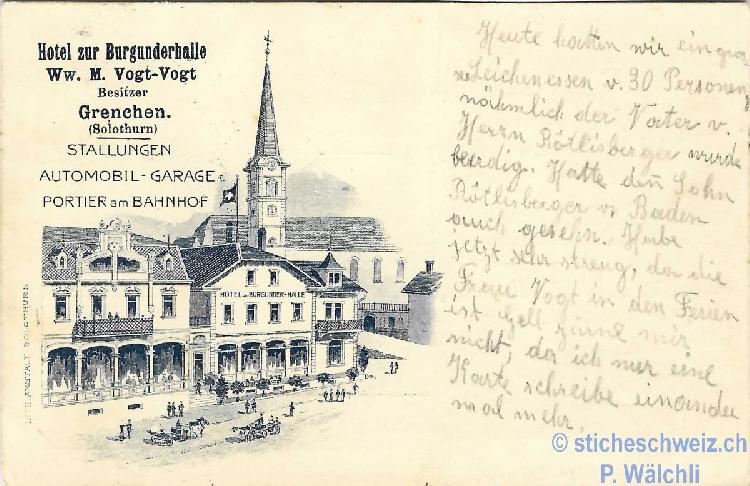 Hotel zur Burgunderhalle
Ww. M. Vogt-Vogt
Besitzer
Grenchen.
(Solothurn)
STALLUNGEN
AUTOMOBIL-GARAGE
PORTIER am BAHNHOF
HOTEL z. BURGUNDER-HALLE
LITH. ANSTALT SOLOTHURN.
Heute hatten wir ein gros
ses Leichenessen v. 30 Personen,
nähmlich der Vater v.
Herrn Rötlisberger wurde
beerdig. Hatte den Sohn
Rötlisberger v. Baden
auch gesehn. Habe
jetzt sehr streng, da die
Frau Vogt in den Ferien
ist. Gell zürne mir
nicht, das ich nur eine
Karte schreibe einander
mal mehr.
© sticheschweiz.ch
P. Wälchli